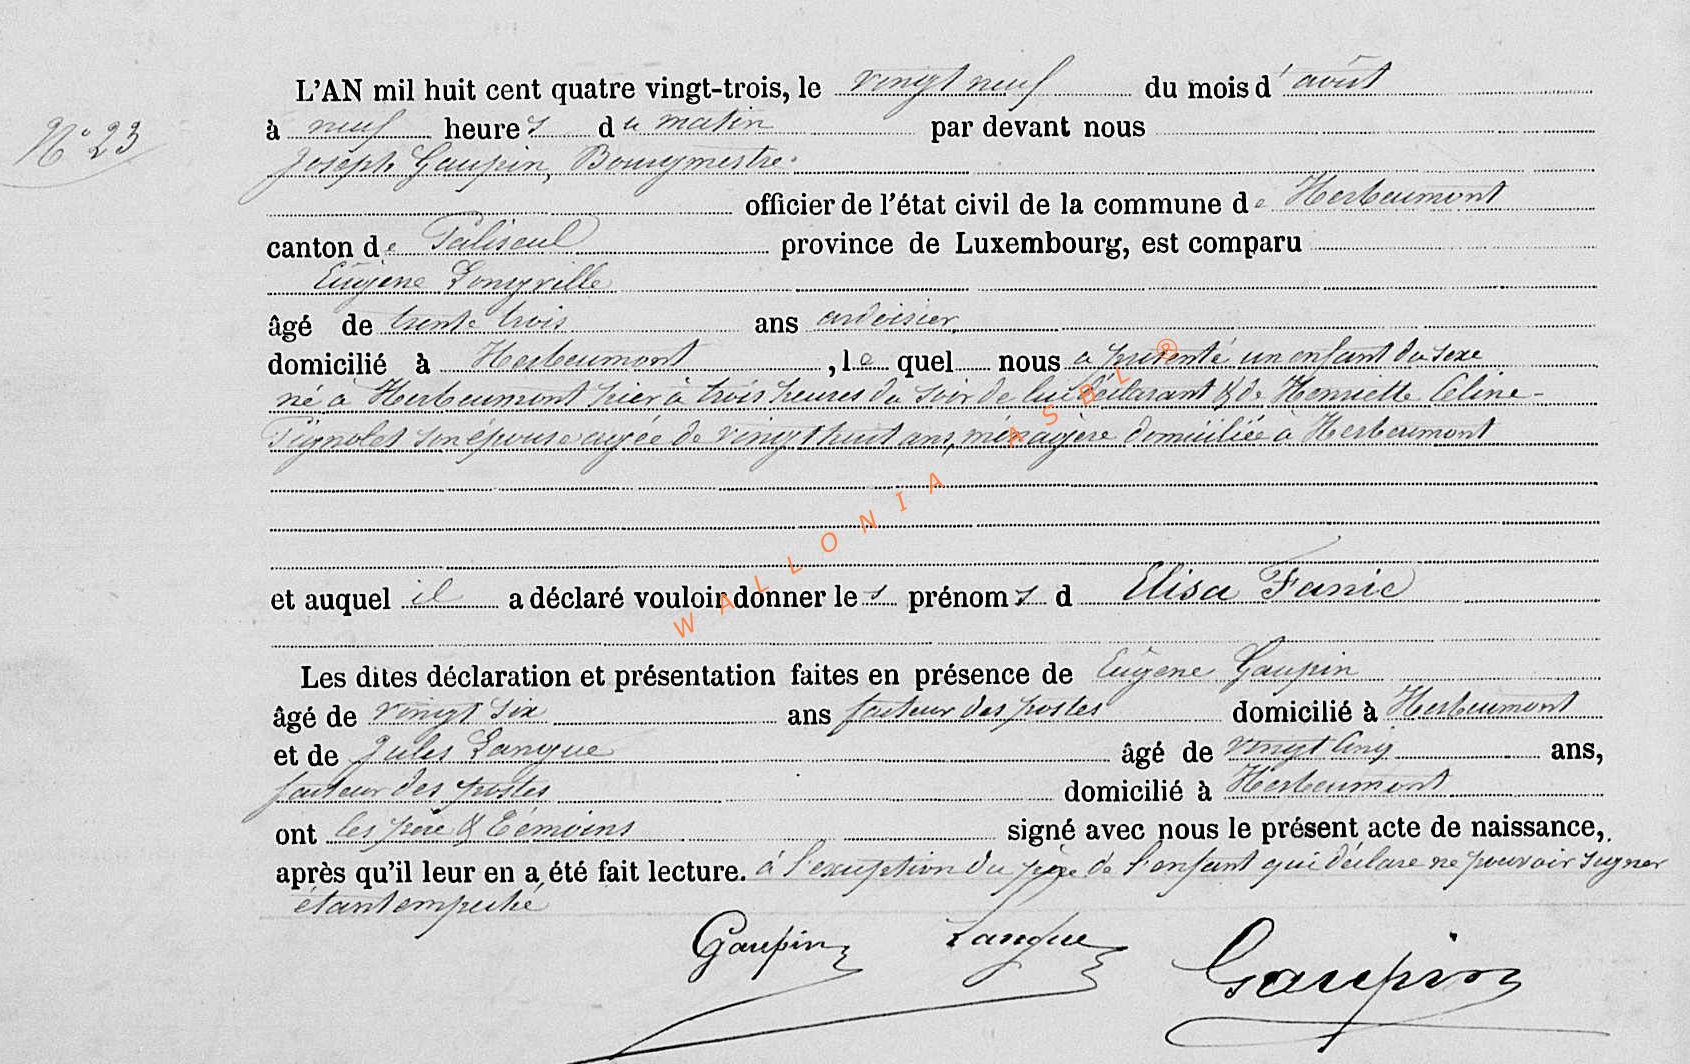 N° 23
L'AN mil huit cent quatre vingt-trois, le vingt neuf du mois d'août
à neuf heures du matin par devant nous
Joseph Gaupin, Bourgmestre
officier de l'état civil de la commune de Herbeumont
canton de Paliseul province de Luxembourg, est comparu
Eugène Longville
âgé de trente trois ans ardoisier
domicilié à Herbeumont, lequel nous a présenté un enfant du sexe
né à Herbeumont hier à trois heures du soir de lui déclarant & de Henriette Céline
Pignolet son épouse agée de vingt huit ans, ménagère domiciliée à Herbeumont
et auquel il a déclaré vouloir donner les prénoms d Elisa Fanie
Les dites déclaration et présentation faites en présence de Eugène Gaupin
âgé de vingt six ans facteur des postes domicilié à Herbeumont
et de Jules Langue âgé de vingt cinq ans,
facteur des postes domicilié à Herbeumont
ont les père & témoins signé avec nous le présent acte de naissance,
après qu'il leur en a été fait lecture. à l'exception du père de l'enfant qui déclare ne pouvoir signer
étant empêché
Gaupin Langue Gaupin
WALLONIA ASBL ®